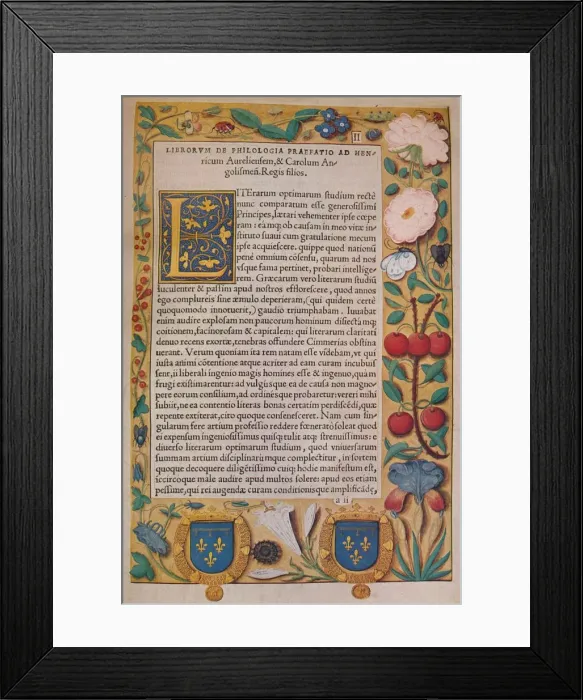 II
LIBRORVM DE PHILOLOGIA PRAEFATIO AD HEN-
ricum Aureliensem, & Carolum An-
golismeñ. Regis filios.
LITErarum optimarum studium rectè
nunc comparatum esse generosissimi
Principes, lætari vehementer ipse cœpe
ram: eámq; ob causam in meo vitæ in-
stituto suaui cum gratulatione mecum
ipse acquiescere. quippe quod nationũ
penè omnium cõsensu, quarum ad nos
vsque fama pertinet, probari intellige-
rem. Græcarum vero literarum studiũ
luculenter & passim apud nostros efflorescere, quod annos
ego complureis sine æmulo deperieram, (qui quidem certè
quoquomodo innotuerit,) gaudio triumphabam. Iuuabat
enim audire explosam non paucorum hominum disiectámq;
coitionem, facinorosam & capitalem: qui literarum claritati
denuo recens exortæ, tenebras offundere Cimmerias obstina
uerant. Verum quoniam ita rem natam esse videbam, vt qui
iusta animi cõtentione atque acriter ad eam curam incubuis
sent, ii liberali ingenio magis homines esse & ingenuo, quàm
frugi existimarentur: ad vulgúsque ea de causa non magno-
pere eorum consilium, ad ordinésque probaretur: vereri mihi
subiit, ne ea contentio literas bonas certatim perdiscẽdi, quæ
repente extiterat, cito quoque consenesceret. Nam cum sin-
gularum ferè artium professio reddere fœneratò soleat quod
ei expensum ingeniosissimus quisq; tulit atq; strenuissimus: e
diuerso literarum optimarum studium, quod vniuersarum
summam artium disciplinarúmque complectitur, in sortem
quoque decoquere diligẽtissimo cuiq; hodie manifestum est,
iccircoque male audire apud multos solere: apud eos etiam
pessime, qui rei augendæ curam conditionisque amplificãdę,
a ii